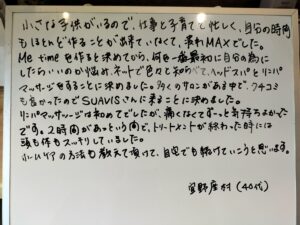 小さな子供がいるので、仕事と子育てと忙しく、自分の時間
もほとんど作ることが出来ていなくて、疲れMAXでした。
Me timeを作ると決めてから、何を一番最初に自分の為に
したらいいのか悩み、ネットで色々と知らべて、ヘッドスパとリンパ
マッサージをすることに決めました。多くのサロンがある中で、クチコミ
も良かったのでSUAVISさんに来ることに決めました。
リンパマッサージは初めてでしたが、痛くなくてずーっと気持ちよかった
です。2時間があっという間で、トリートメントが終わった時には
頭も体もスッキリしていました。
ケアの方法も教えて頂けて、自宅でも続けていこうと思います。
宜野座村（40代）